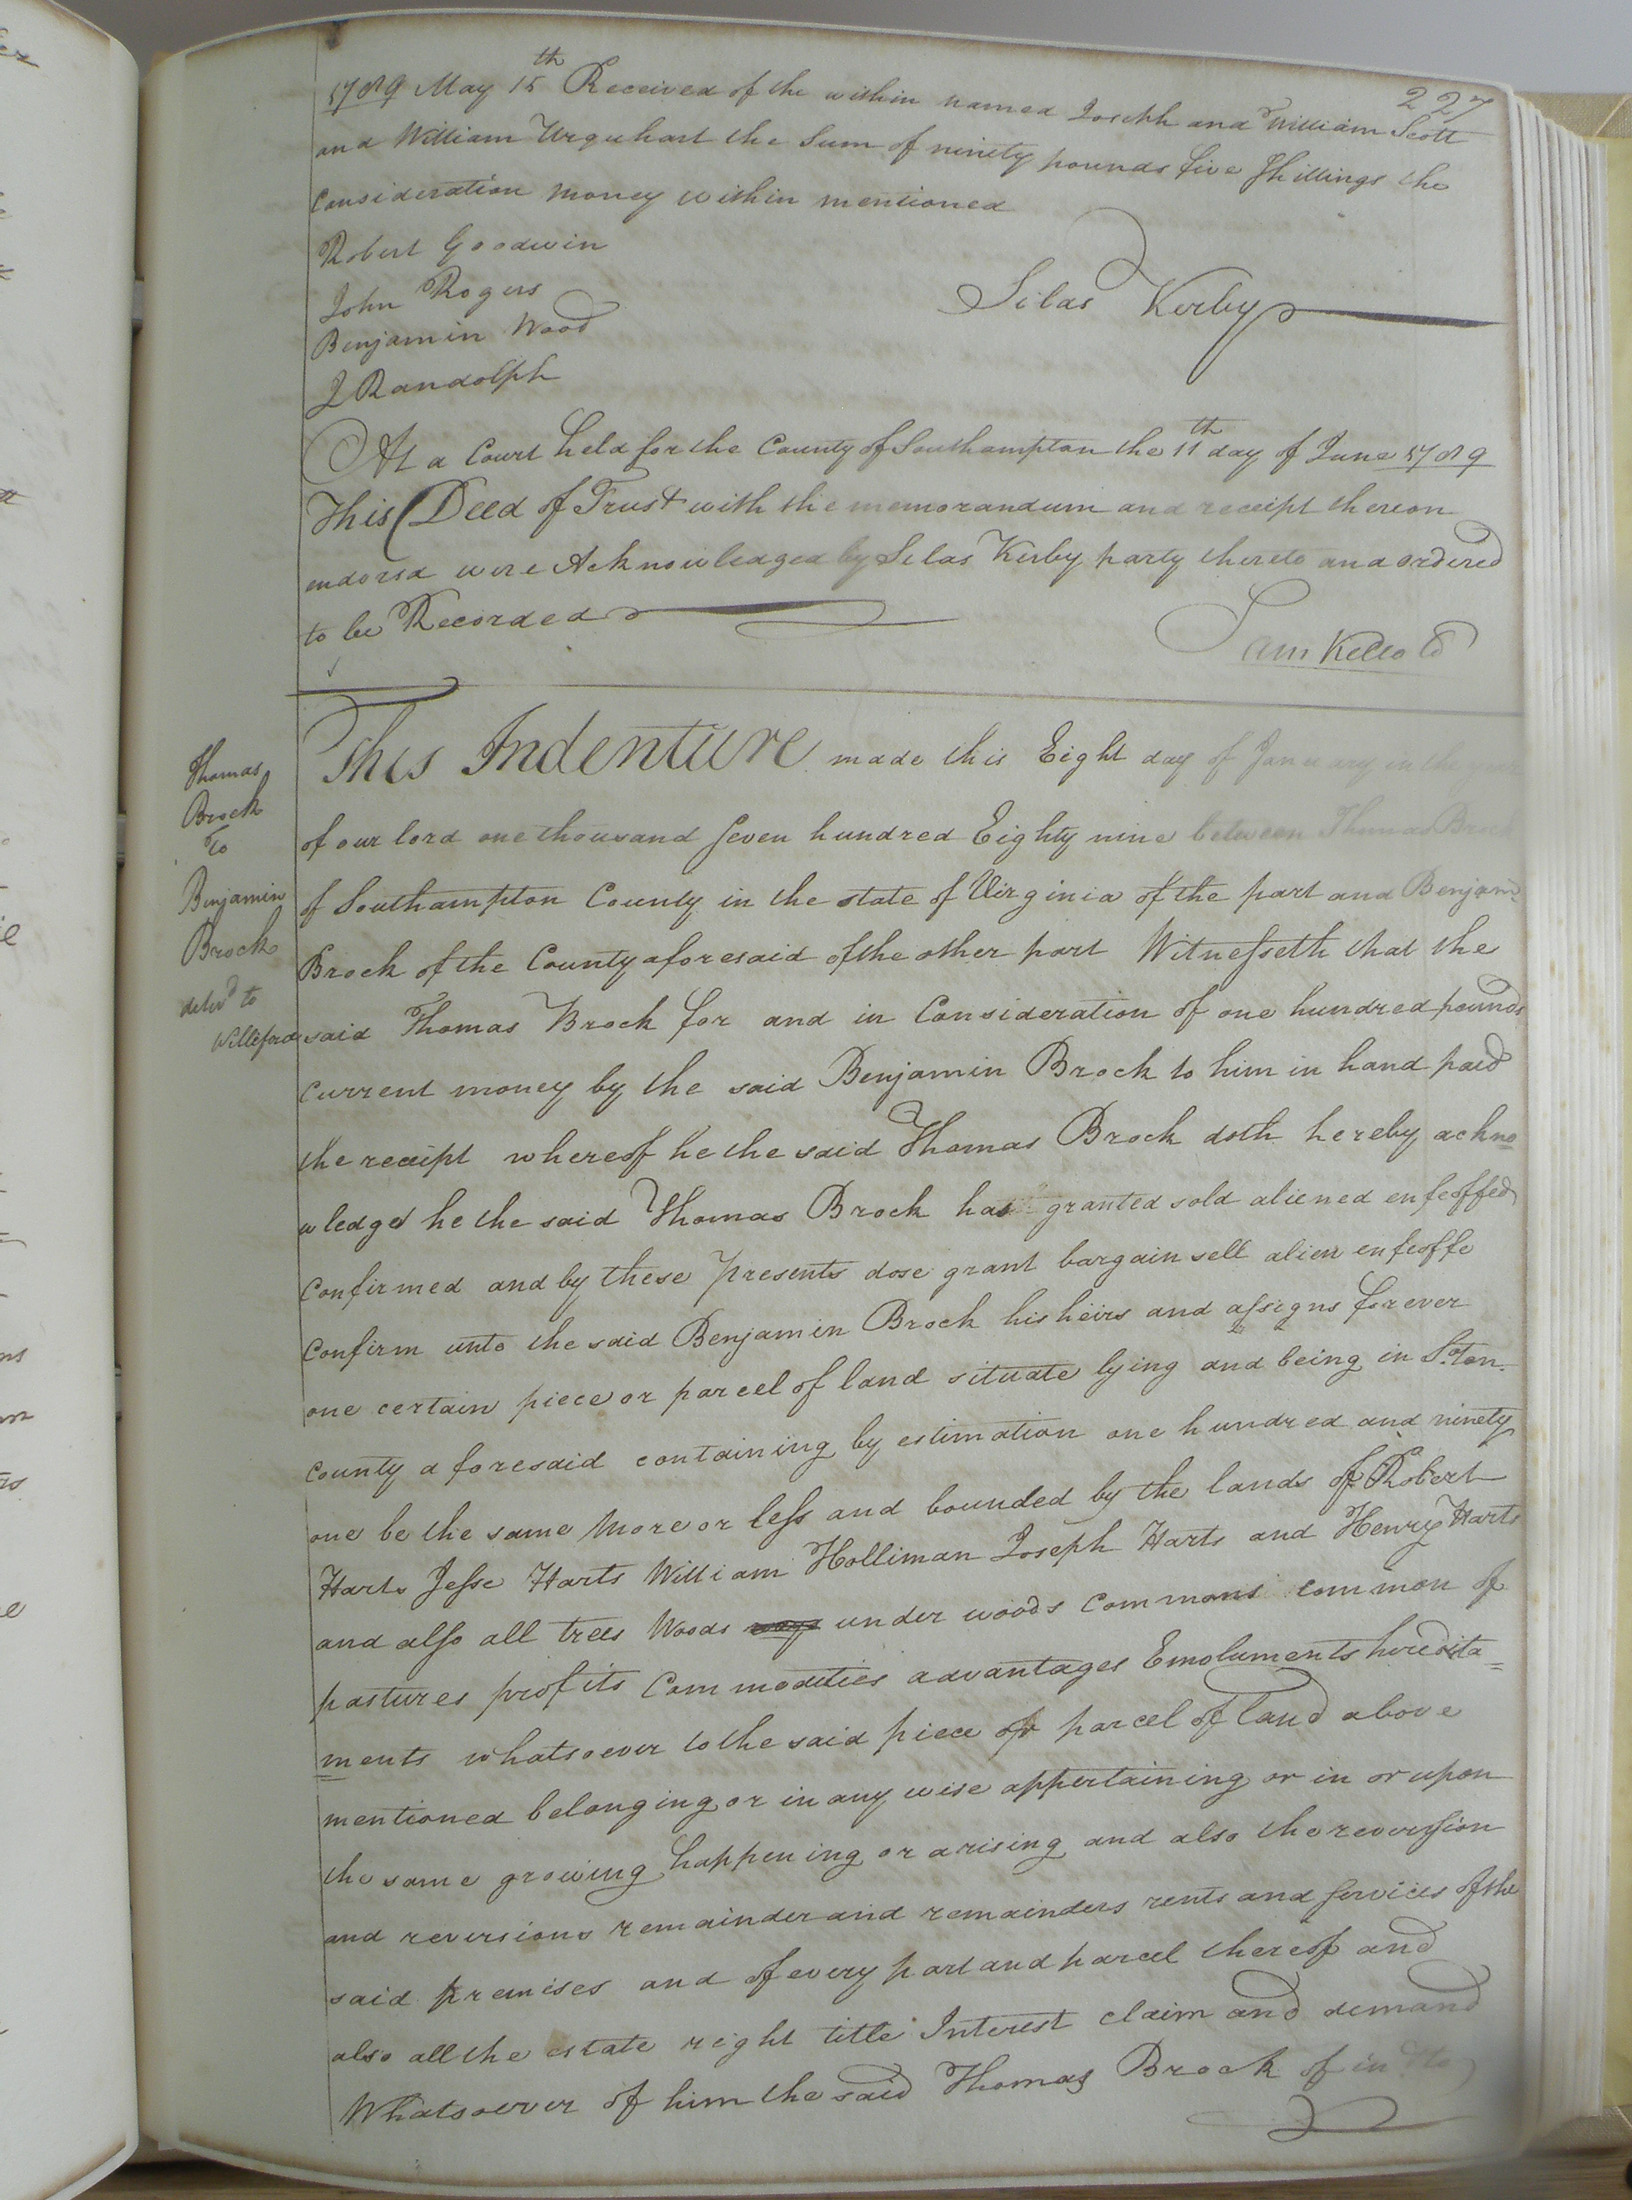 227
1789 May 15th Received of the within named Joseph and William Scott
and William Urquhart the Sum of ninety pounds five Shillings the
Consideration money within mentioned
Robert Goodwin
John Rogers
Silas Kerby
Benjamin Wood
J Randolph
At a Court held for the County of Southampton the 11th day of June 1789
This Deed of Trust with the memorandum and receipt thereon
endorsd were Acknowledged by Silas Kerby party thereto and ordered
to be Recorded
Sam Kello
Thomas
Brock
To
Benjamin
Brock
delivd to
Williford
This Indenture made this Eight day of January in the year
of our lord one thousand Seven hundred Eighty nine between Thomas Brock
of Southampton County in the state of Virginia of the part and Benjamn
Brock of the County aforesaid of the other part Witnesseth that the
said Thomas Brock for and in Consideration of one hundred pounds
Current money by the said Benjamin Brock to him in hand paid
the receipt whereof he the said Thomas Brock doth hereby ackno=
wledged he the said Thomas Brock has granted sold aliened enfeoffed
Confirmed and by these presents dose grant bargain sell alien enfeoffe
Confirm unto the said Benjamin Brock his heirs and assigns forever
one certain piece or parcel of land situate lying and being in S.ton
County aforesaid containing by estimation one hundred and ninety
one be the same more or less and bounded by the lands of Robert
Harts Jesse Harts William Holliman Joseph Harts and Henry Harts
and also all trees Woods ways under woods Commons common of
pastures profits Commodities advantages Emoluments heredita=
=ments whatsoever to the said piece or parcel of land above
mentioned belonging or in any wise appertaining or in or upon
the same growing happening or arising and also the reversion
and reversions remainder and remainders rents and services of the
said premises and of every part and parcel thereof and
also all the estate right title Interest claim and demand
Whatsoever of him the said Thomas Brock of in &to